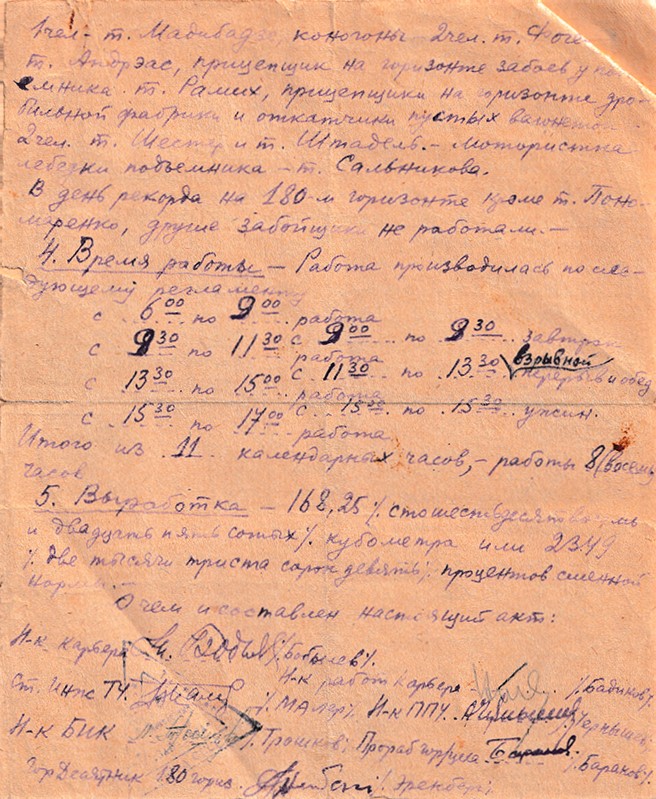 1 чел - т. Мадибадзе, коногоны 2 чел. т. Фоге
т. Андрэас, прицепщик на горизонте забоев у по
емника т. Рамих, прицепщики на горизонте дро-
бильной фабрики и откатчики пустых вагонеток
2 чел. т. Шестер и т. Штадель. - мотористка
лебедки подъемника - т. Сальникова.
В день рекорда на 180-м горизонте кроме т. Поно-
маренко, другие забойщики не работали. -
4. Время работы - Работа производилась по сле-
дующему регламенту
с 6 00 по 9 00 работа
с 9 00 по 9 30 завтрак
с 9 30 по 11 30 работа
с 11 30 по 13 30 взрывной перерыв и обед
с 13 30 по 15 00 работа
с 15 00 по 15 30 ужин.
с 15 30 по 17 00 работа
Итого из 11 календарных часов, - работы 8 (восемь
часов
5. Выработка - 168,25 /. стошестьдесятвосемь
и двадцать пять сотых /. кубометра или 2349
/. две тысячи триста сорок девять /. процентов сменной
нормы. -
О чем и составлен настоящий акт:
Н-к карьера /. Бобылев /.
Н-к работ карьера - /. Бадиков /.
Ст. инж ТЧ /. Маляр /. Н-к ППЧ /. Чернышев /.
Н-к БИК /. Трошков /. Прораб /. Баранов /.
Гордесятник 180 гориз. /. Эренберг /.